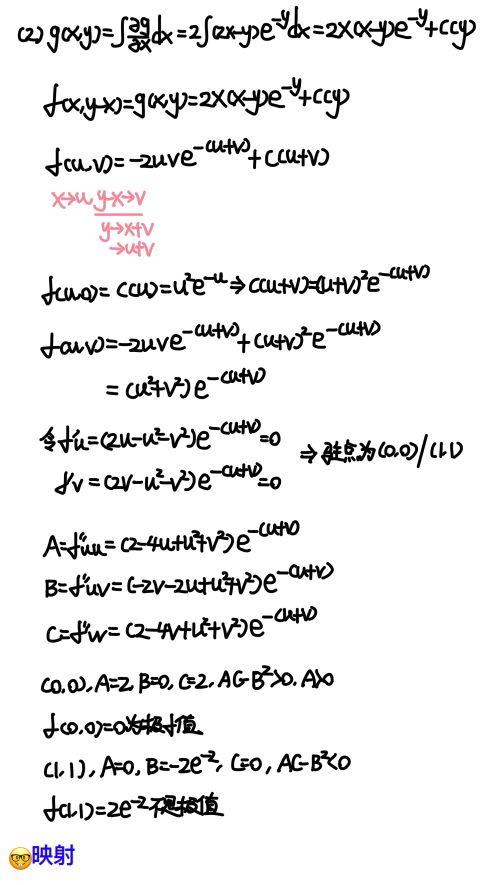 (2) g(x,y)=∫∂g/∂x dx=2∫(2x-y)e^{-y}dx=2x(x-y)e^{-y}+C(y)
f(x,y-x)=g(x,y)=2x(x-y)e^{-y}+C(y)
f(u,v)=-2uve^{-(u+v)}+C(u+v)
x→u, y-x→v
y→x+v
→u+v
f(u,0)=C(u)=u²e^{-u}⇒C(u+v)=(u+v)²e^{-(u+v)}
f(u,v)=-2uve^{-(u+v)}+(u+v)²e^{-(u+v)}
=(u²+v²)e^{-(u+v)}
令f'u=(2u-u²-v²)e^{-(u+v)}=0
f'v=(2v-u²-v²)e^{-(u+v)}=0
⇒驻点为(0,0)/(1,1)
A=f''uu=(2-4u+u²+v²)e^{-(u+v)}
B=f''uv=(-2v-2u+u²+v²)e^{-(u+v)}
C=f''vv=(2-4v+u²+v²)e^{-(u+v)}
(0,0),A=2,B=0,C=2,AC-B²>0,A>0
f(0,0)=0为极小值
(1,1),A=0,B=-2e^{-2},C=0,AC-B²<0
f(1,1)=2e^{-2}不是极值
🤓映射